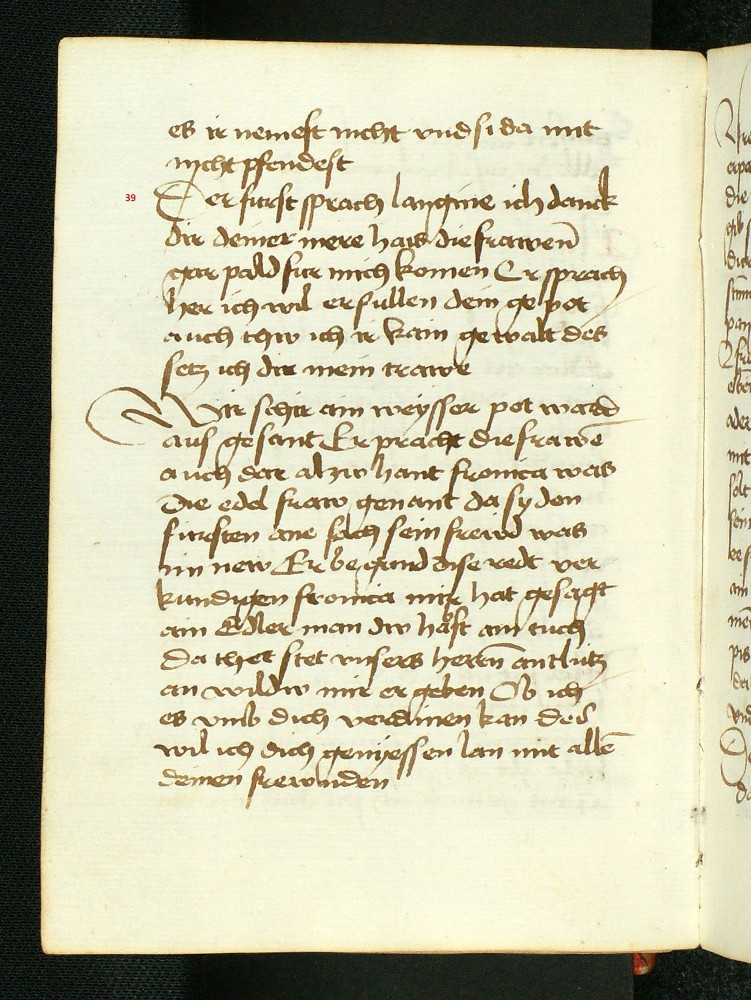 es ir nemest nicht vnd si da mit
nicht pfendest
39
Der furst sprach langine ich danck
dir deiner mere hais die frawen̄
gar pald fur mich komen Er sprach
her ich wil erfullen dein gepot
auch thw ich ir kain gewalt des
setz ich dir mein trawe
Wir schir ain weysser pot ward
aus gesant Er pracht die frawē
auch dar alzw hant fronica was
Die edel fraw genant da sy den
fursten ane sach sein frewd was
im new Er begund dise redt ver
kundigen fronica mir hat gesagt
ain Edler man dw habst ain tuch
Da thet stet vnsers herrn̄ antlutz
an wildw mir er geben Ob ich
es vmb dich verdinen kan des
wil ich dich genyessen lan mit allē
deinen frewnden